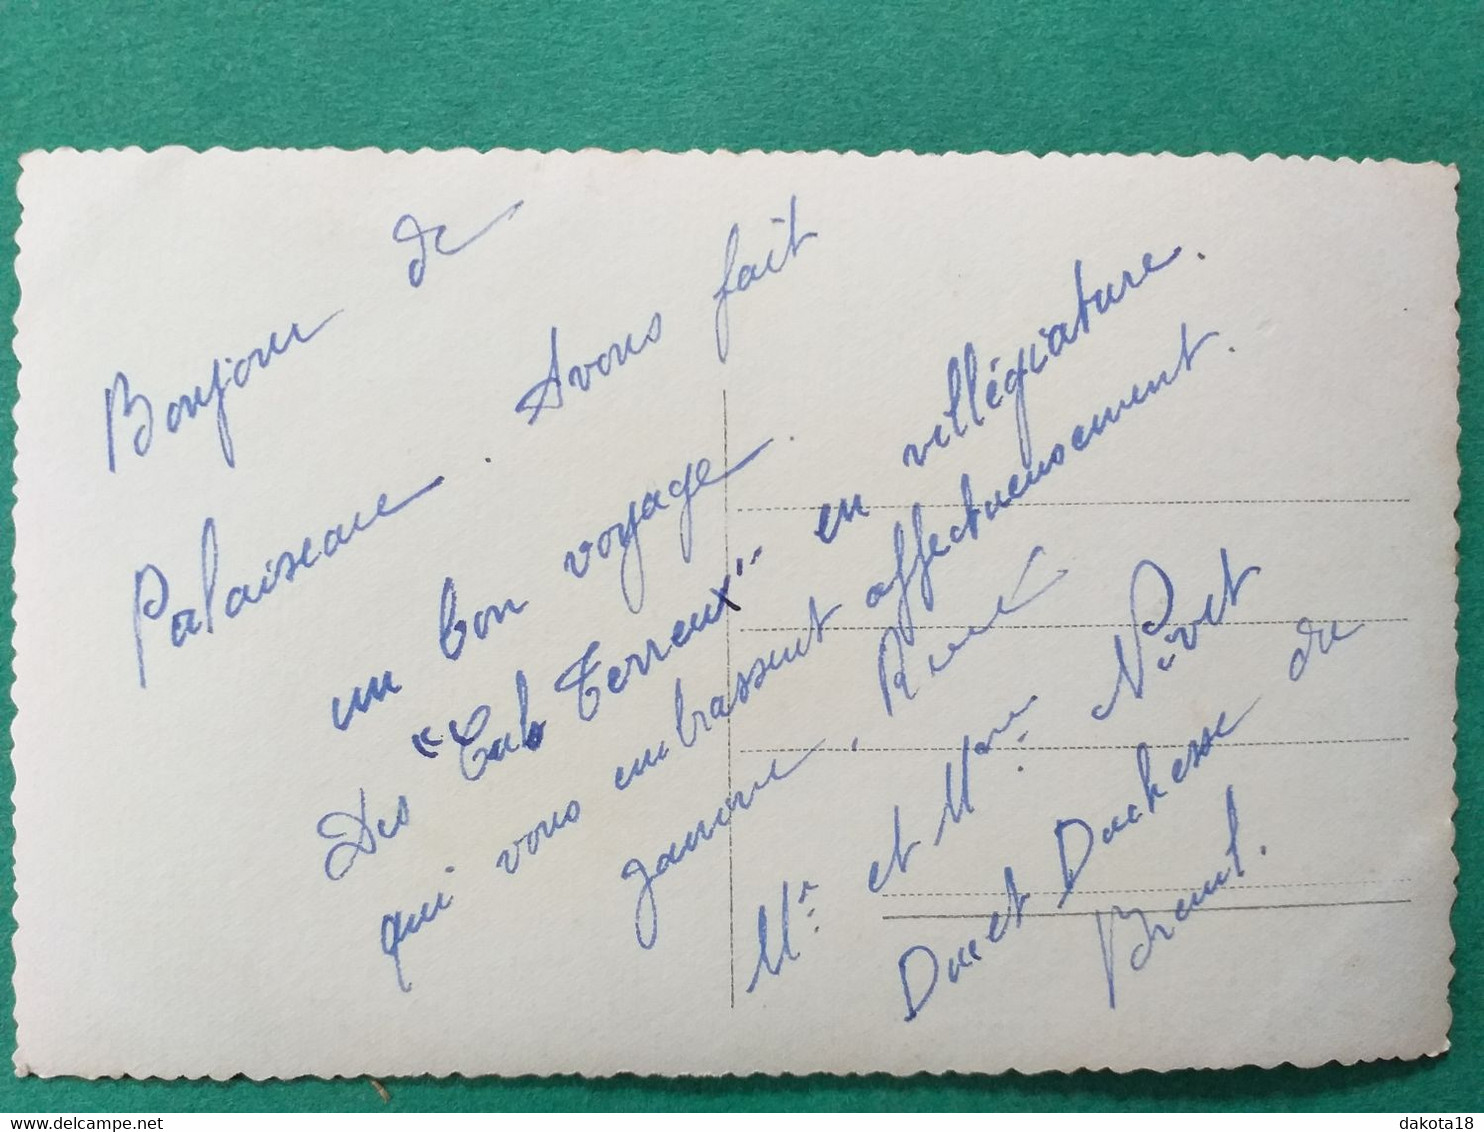 Bonjour de
Palaiseau. Avons fait
un bon voyage.
Des "Culs Terreux" en villégiature.
qui vous embrassent affectueusement.
Janine, René
Mr. et Mme. Nivet
Duc et Duchesse du
Breuil.
dakota18